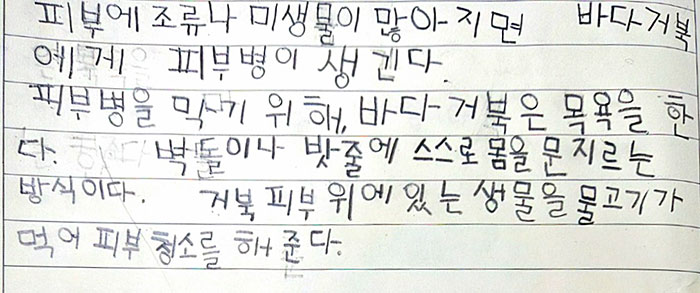 피부에 조류나 미생물이 많아지면 바다거북
에게 피부병이 생긴다.
피부병을 막기 위해, 바다거북은 목욕을 한
다. 벽돌이나 밧줄에 스스로 몸을 문지르는
방식이다. 거북 피부 위에 있는 생물을 물고기가
먹어 피부 청소를 해 준다.